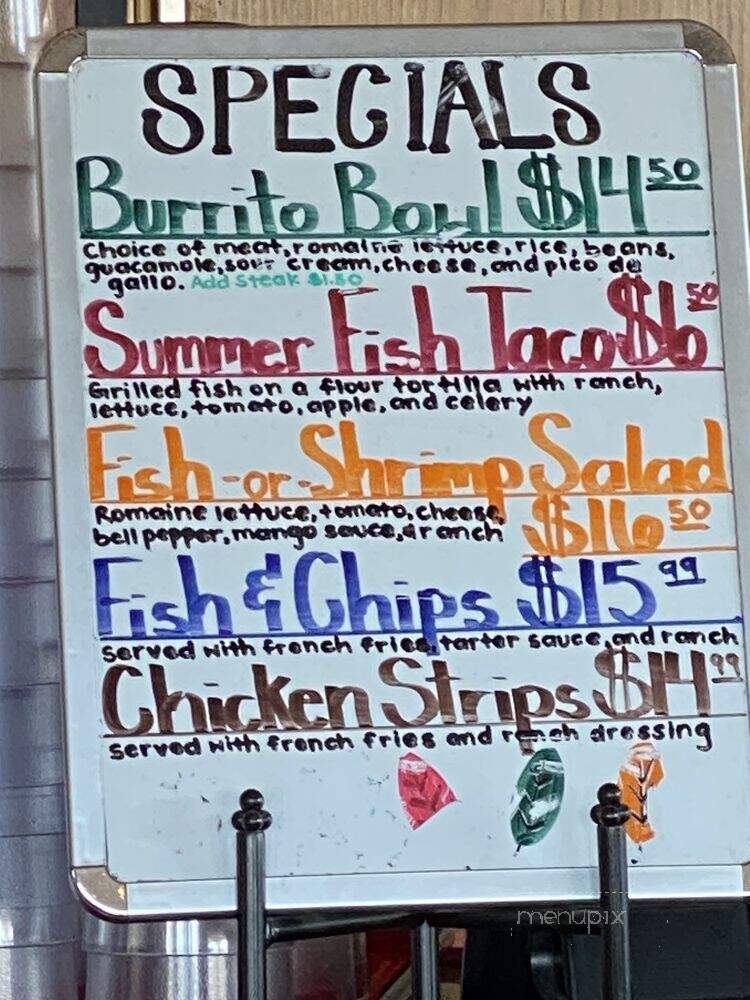 SPECIALS
Burrito Bowl $14 50
Choice of meat, romaine lettuce, rice, beans,
guacamole, sour cream, cheese, and pico de
gallo. Add Steak $1.50
Summer Fish Taco $6 50
Grilled fish on a flour tortilla with ranch,
lettuce, tomato, apple, and celery
Fish -or- Shrimp Salad
Romaine lettuce, tomato, cheese,
bell pepper, mango sauce, & ranch
$16 50
Fish & Chips $15 99
served with french fries, tarter sauce, and ranch
Chicken Strips $14 99
served with french fries and ranch dressing
menupix